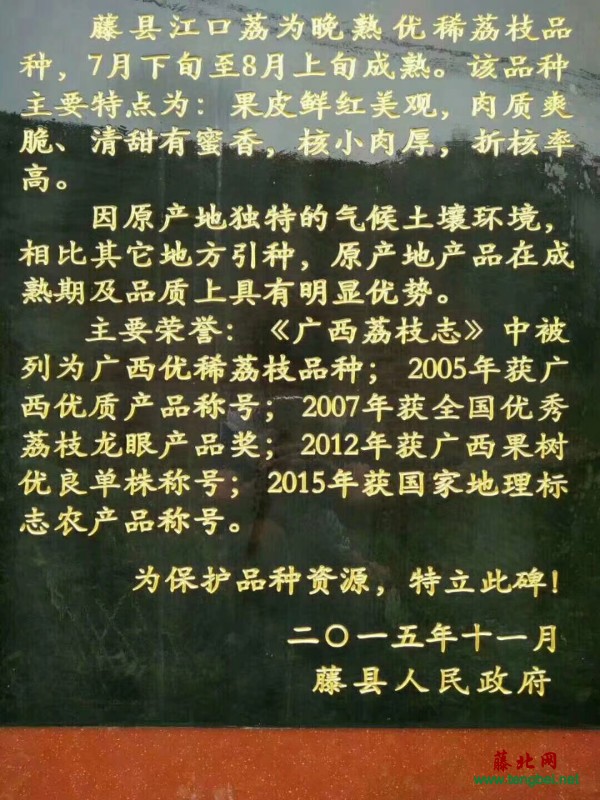 藤县江口荔为晚熟优稀荔枝品
种，7月下旬至8月上旬成熟。该品种
主要特点为：果皮鲜红美观，肉质爽
脆、清甜有蜜香，核小肉厚，折核率
高。
因原产地独特的气候土壤环境，
相比其它地方引种，原产地产品在成
熟期及品质上具有明显优势。
主要荣誉：《广西荔枝志》中被
列为广西优稀荔枝品种；2005年获广
西优质产品称号；2007年获全国优秀
荔枝龙眼产品奖；2012年获广西果树
优良单株称号；2015年获国家地理标
志农产品称号。
为保护品种资源，特立此碑！
二〇一五年十一月
藤县人民政府
藤北网
www.tengbei.net